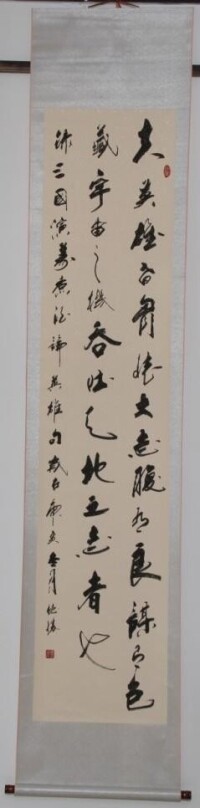 夫英雄者胸懷大志腹有良謀有包
藏宇宙之機吞吐天地之志者也
錄三國演義煮酒論英雄句歲在庚月